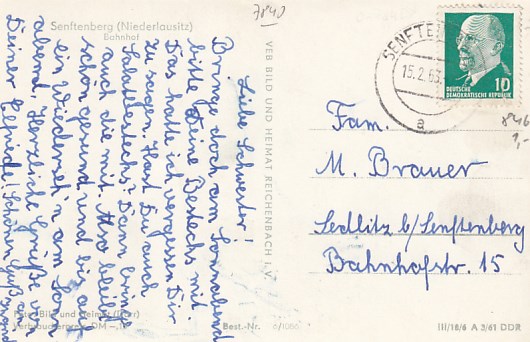 Senftenberg (Niederlausitz)
Bahnhof
7840
Liebe Schwester!
Bringe doch am Sonnabend
bitte Deine Bestecks mit.
Das hatte ich vergessen Dir
zu sagen. Hast Du auch
Salatbestecks? Dann bringe
auch die mit. Also bleibt
schön gesund und bis auf
ein Wiederseh'n am Sonn-
abend. Herzliche Grüße von
Deiner Elfriede! Schönen Gruß an
Foto: Bild und Heimat
Verbraucherpreis DM
Best.-Nr. 6/1066
VEB BILD UND HEIMAT REICHENBACH I. V.
SENFTEN
15.2.63
a
10
DEUTSCHE
DEMOKRATISCHE REPUBLIK
1,-
Fam.
M. Brauer
Sedlitz b/Senftenberg
Bahnhofstr. 15
III/18/6 A 3/61 DDR